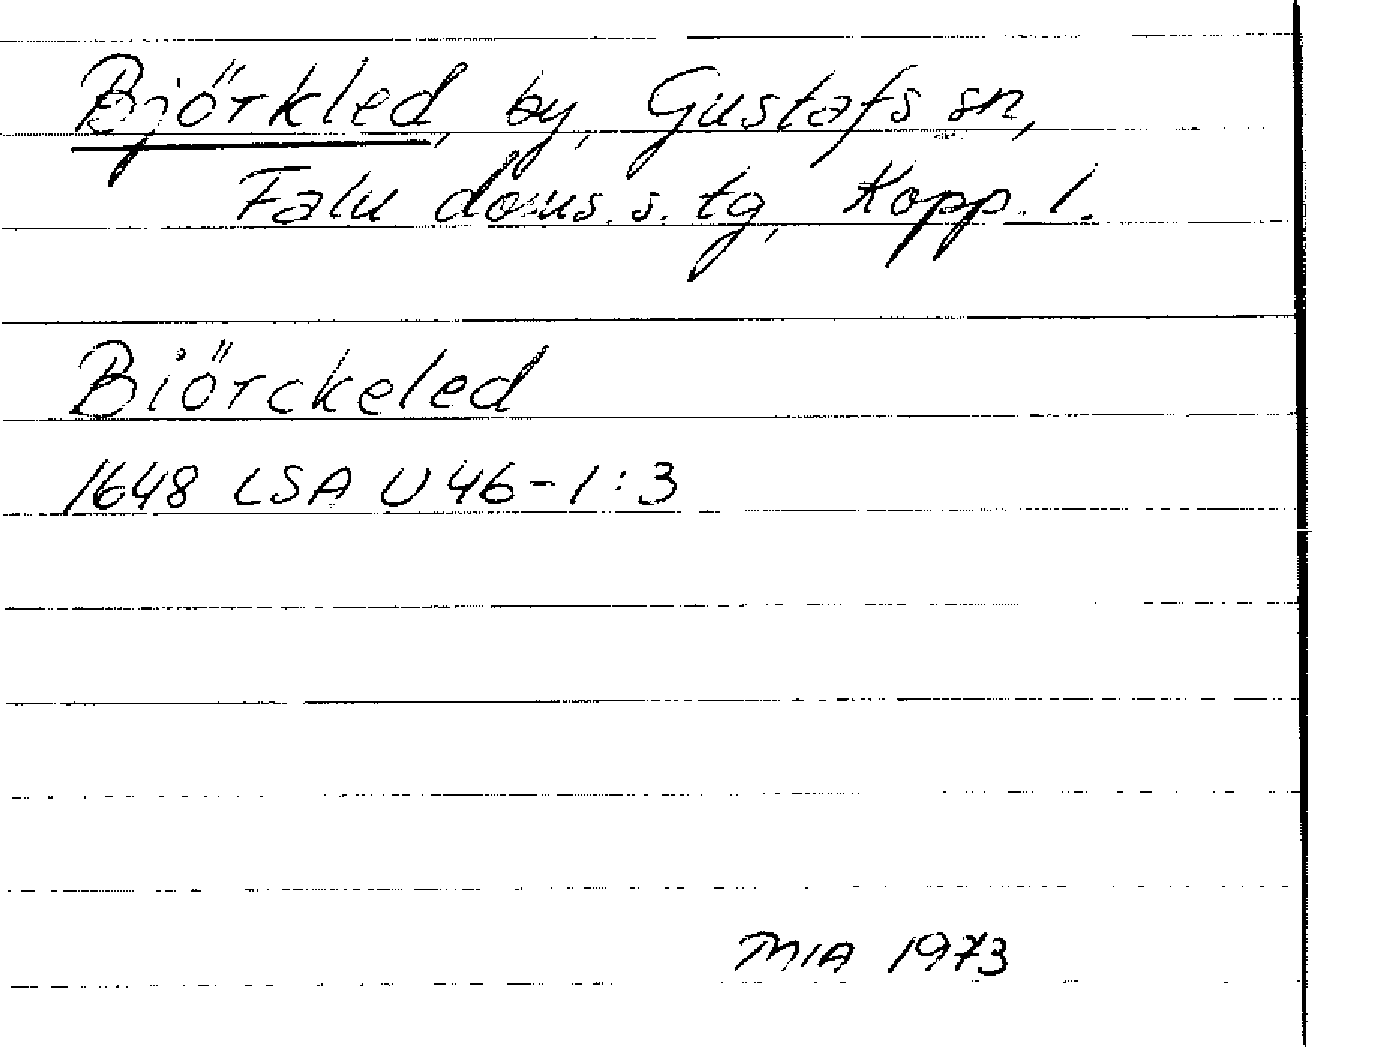 Björkled, by, Gustafs sn,
Falu doms. s. tg, Kopp. l.
Biörckeled
1648 LSA U 46-1:3
MIA 1973